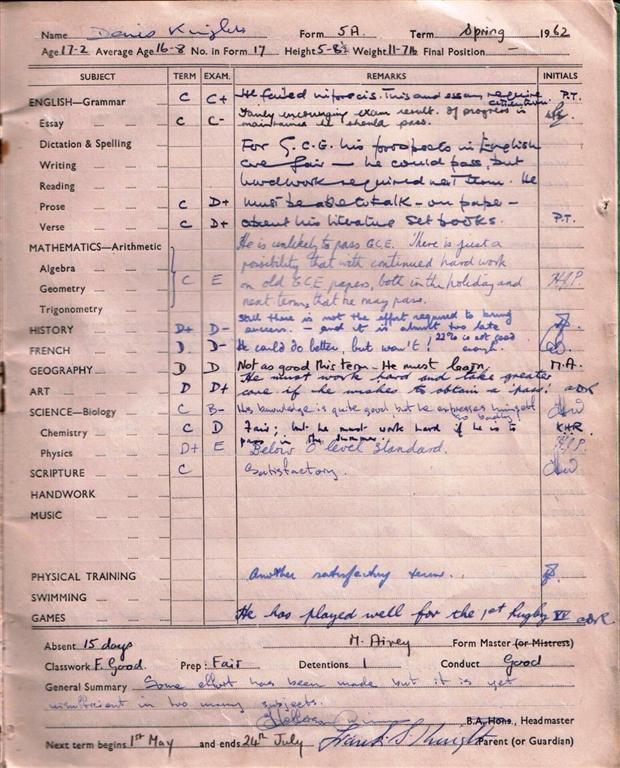 Name Denis Knights Form 5A. Term Spring 1962
Age 17-2 Average Age 16-8 No. in Form 17 Height 5-8½ Weight 11-7½ Final Position —
SUBJECT TERM EXAM. REMARKS INITIALS
ENGLISH—Grammar C C+ He failed in precis. This and essay require attention. P.T.
Essay C C- Fairly encouraging exam result. If progress is maintained he should pass.
Dictation & Spelling For G.C.E. his prospects in English
Writing are fair — he could pass, but
Reading hard work required next term. He
Prose C D+ must be able to talk - on paper -
Verse C D+ about his literature set books. P.T.
MATHEMATICS—Arithmetic He is unlikely to pass G.C.E. There is just a
Algebra possibility that with continued hard work
Geometry C E on old G.C.E. papers, both in the holiday and H.J.P.
Trigonometry next term, that he may pass.
HISTORY D+ D- Still there is not the effort required to bring success. - and it is almost too late
FRENCH D D- He could do better, but won't! 22% is not good enough.
GEOGRAPHY D D Not as good this term. He must learn. M.A.
ART D D+ He must work hard and take greater care if he wishes to obtain a 'pass'.
SCIENCE—Biology C B- His knowledge is quite good but he expresses himself so badly!
Chemistry C D Fair; but he must work hard if he is to pass in the summer. KHR.
Physics D+ E Below 'O' level standard. H.J.P.
SCRIPTURE C Satisfactory.
HANDWORK
MUSIC
PHYSICAL TRAINING Another satisfactory term.
SWIMMING
GAMES He has played well for the 1st Rugby XV
Absent 15 days M. Airey Form Master (or Mistress)
Classwork F. Good. Prep: Fair Detentions 1 Conduct Good
General Summary Some effort has been made but it is yet
insufficient in too many subjects.
B.A. Hons., Headmaster
Next term begins 1st May and ends 24th July Frank S. Knights Parent (or Guardian)